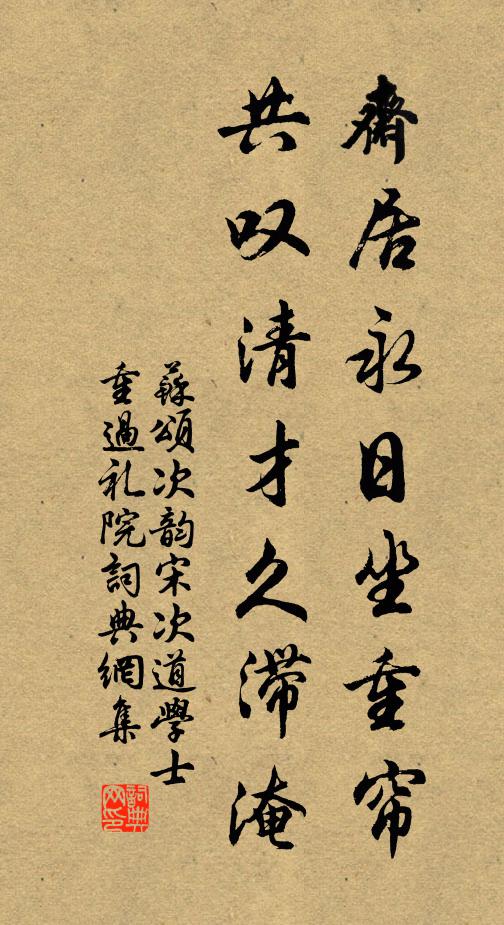 齋居永日坐重帘
共叹清才久滞淹
蘇頌次韵宋次道學士
重過礼院詞典網集
詞典
网印